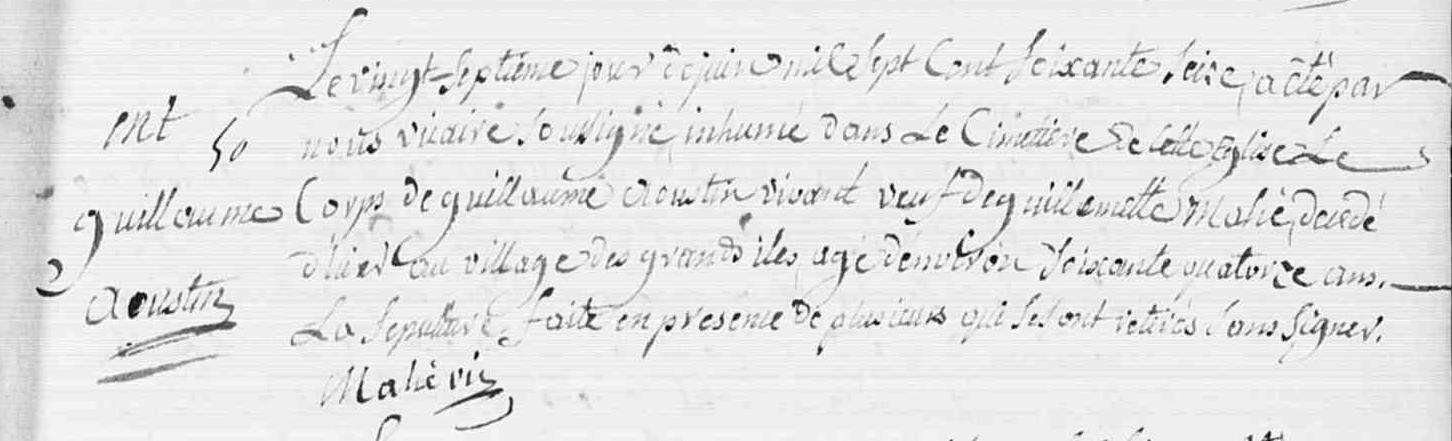 ent
50
guillaume
aoustin
Le vingt-septieme jour de juin mil sept Cent soixante seize, a été par
nous vicaire soussigné, inhumé dans Le Cimetiere de cette Eglise Le
Corps de guillaume aoustin vivant veuf de guillemette Mahé, decedé
d'hier au village des grands iles, agé d'environ soixante quatorze ans.
La sepulture faite en presence de plusieurs qui se sont retirés sans signer.
Mahé vic